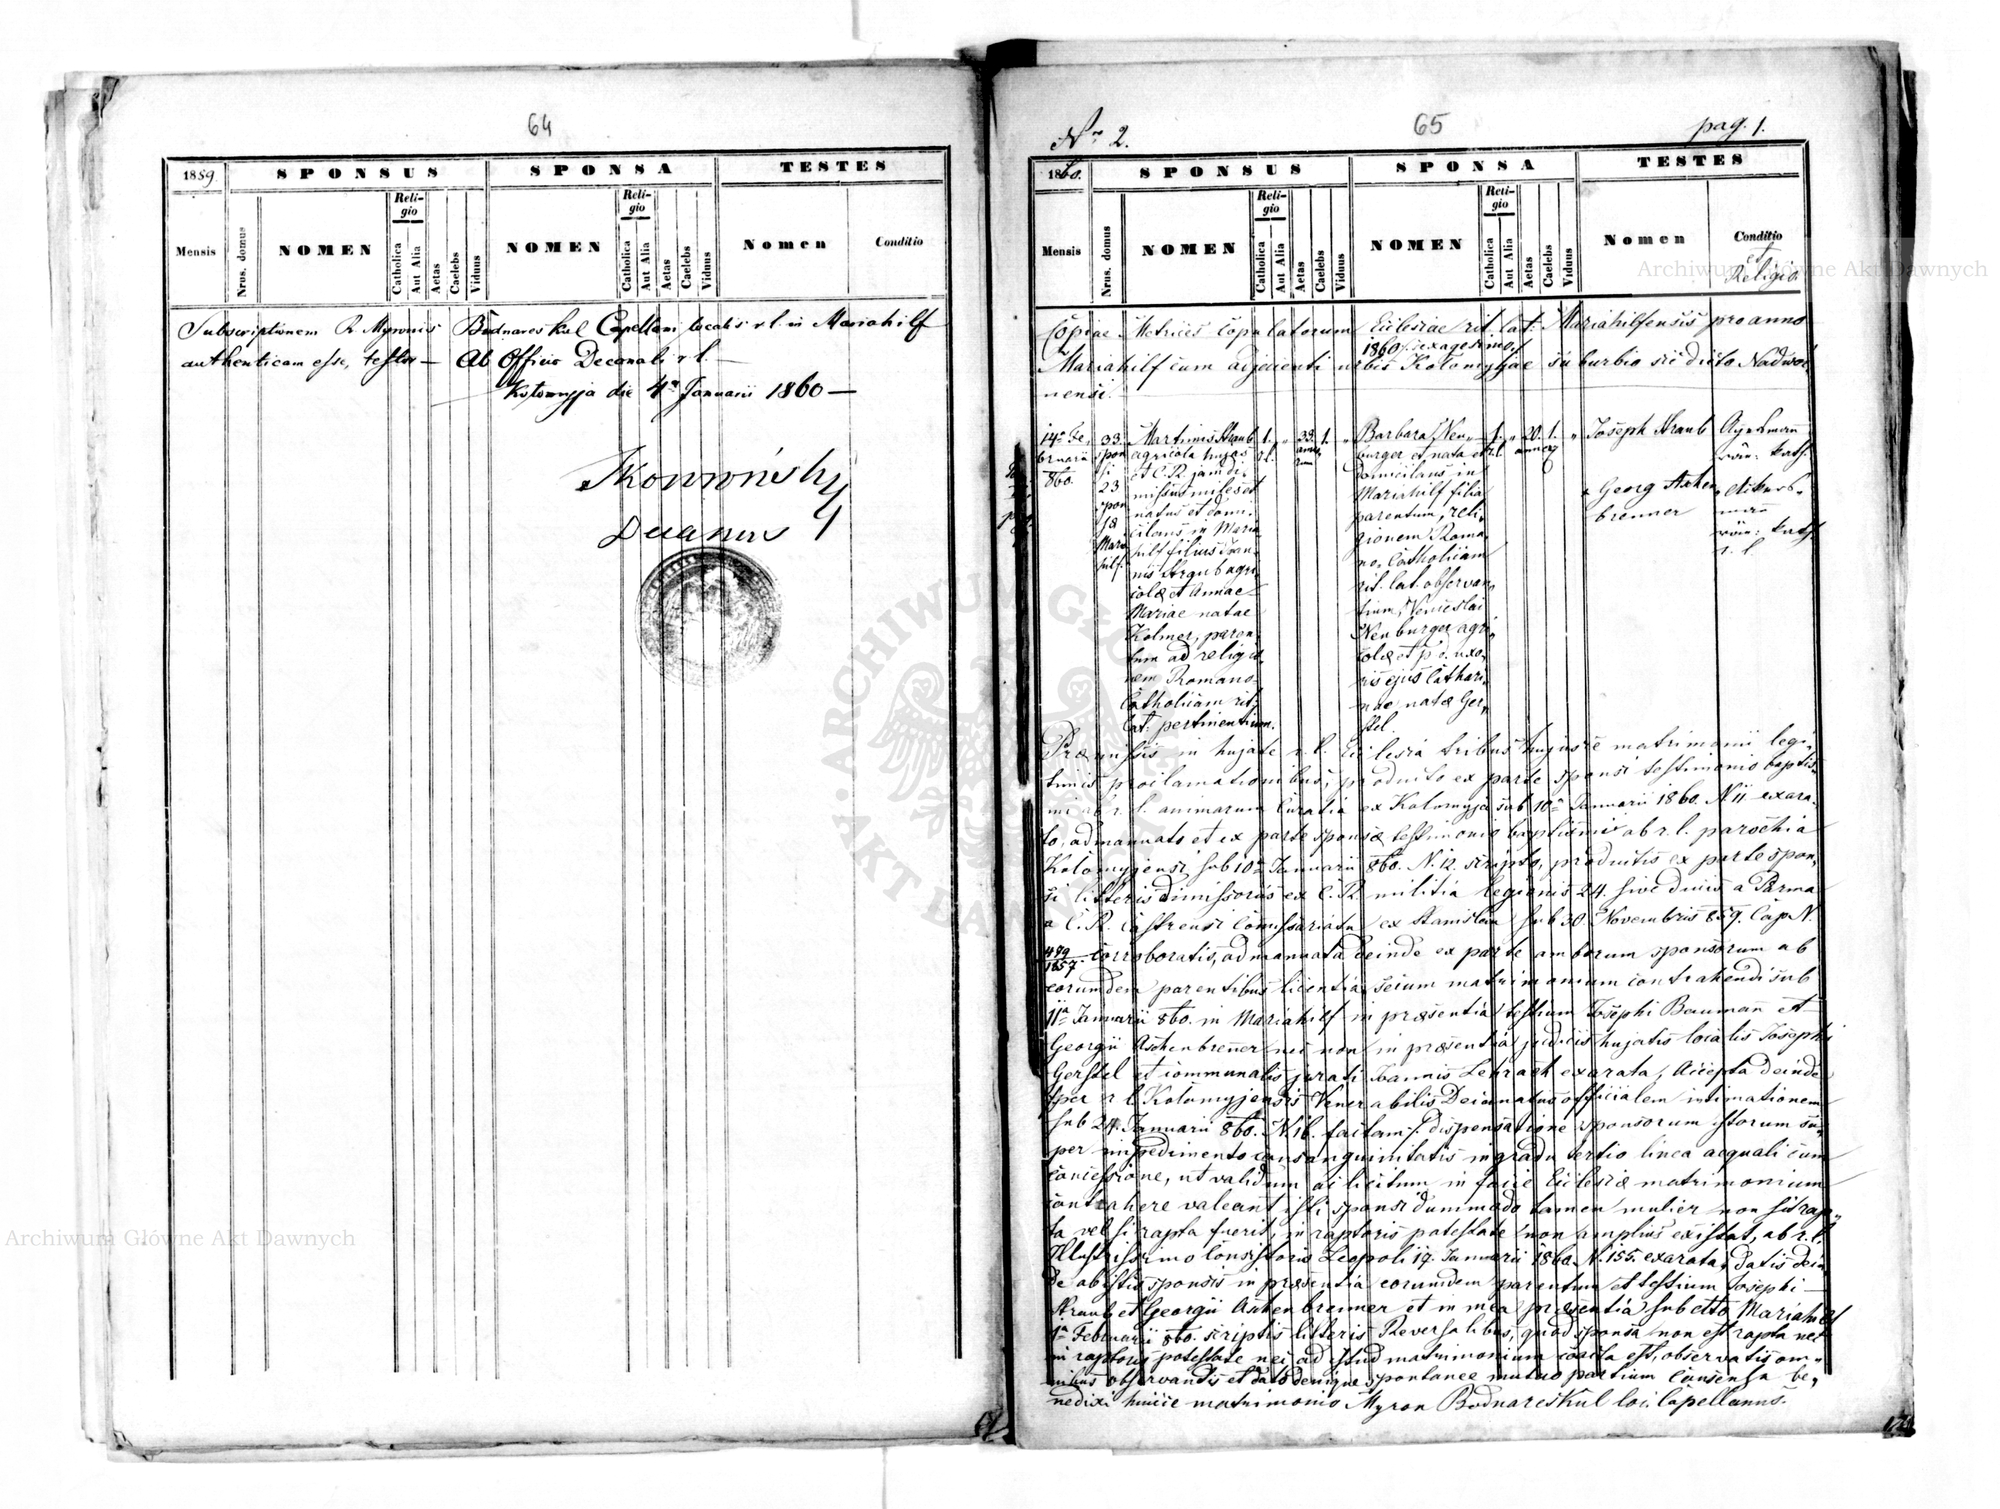 64
1859.
SPONSUS
SPONSA
TESTES
Mensis
Nrus. domus
NOMEN
Religio
Catholica
Aut Alia
Aetas
Caelebs
Viduus
NOMEN
Religio
Catholica
Aut Alia
Aetas
Caelebs
Viduus
Nomen
Conditio
Subscriptionem R. Myronis Bodnareskul Capellani localis r. l. in Mariahilf
authenticam esse, testor — Ab Officio Decanali r. l. —
Kolomyja die 4ª Januarii 1860 —
Decanus
Nro 2.
65
pag. 1.
1860.
SPONSUS
SPONSA
TESTES
Mensis
Nrus. domus
NOMEN
Religio
Catholica
Aut Alia
Aetas
Caelebs
Viduus
NOMEN
Religio
Catholica
Aut Alia
Aetas
Caelebs
Viduus
Nomen
Conditio
et
Religio
Copiae Metrices Copulatorum Ecclesiae rit. lat. Mariahilfensis pro anno
1860 /: sexagesimo :/
Mariahilf cum adjacenti urbis Kolomyjae suburbio sic dicto Nadwor
nensi.
14ª Fe,
bruarii
860.
33.
23
18
Maria
hilf.
Martinus Straub
agricola hujas
et C. R. jam di,
missus miles et
natus et domi,
cilans in Maria
hilf filius Joan,
nis Straub agri,
colae et Annae
Mariae natae
Kolmer, paren,
tum ad religio,
nem Romano
Catholicam rit.
lat. pertinentium.
1.
r. l.
33.
anno,
rum
1.
Barbara Neu,
burger et nata et
domicilans in
Mariahilf filia
parentum, reli,
gionem Roma,
no, Catholicam
rit. lat. observan,
tium, Venceslai
Neuburger agri,
colae et p. d. uxo,
ris ejus Cathari,
nae, natae Ger,
stel.
1.
r. l.
20.
1.
Joseph Straub
röm: kath.
+ Georg Aschen
brenner
Ackers,
mann
röm: kath.
r. l.
Praemissis in hujate r. l. Ecclesia tribus hujusce matrimonii legi,
timis proclamationibus, producto ex parte sponsi testimonio baptis,
mi ab r. l. animarum Curatia ex Kolomyja sub 10ª Januarii 1860. N 11 exara,
to, admanuato et ex parte sponsae testimonio baptismi ab r. l. parochia
Kolomyjensi sub 10ª Januarii 860. N. 12. scripto, productis ex parte spon,
si litteris dimissoriis ex C. R. militia legionis 24. sive ducis a Parma
a C. R. Castrensi Comissariatu ex Stanislau sub 30. Novembris 859. Cap N.
489/1857. corroboratis, admanuata deinde ex parte amborum sponsorum ab
eorumdem parentibus licentia secum matrimonium contrahendi sub
11ª Januarii 860. in Mariahilf in praesentia testium Josephi Bauman et
Georgii Aschenbrenner nec non in praesentia judicis hujatis localis Josephi
Gerstel et communalis jurati Joannis Lehrach exarata, Accepta deinde
/:per r. l. Kolomyjensis Venerabilis Decanatus officialem intimationem
sub 24. Januarii 860. N. 16. factam:/ dispensatione sponsorum istorum su,
per impedimento consanguinitatis in gradu tertio linea aequali cum
concessione, ut validum ac licitum in facie Ecclesiae matrimonium
contrahere valeant isti sponsi dummodo tamen mulier non sit rap,
ta vel si rapta fuerit, in raptoris potestate non amplius existat, ab r. l.
Illustrissimo Consistoris Leopoli 17. Januarii 1860. N. 155. exarata, Datis dein
de ab istis sponsis in praesentia eorumdem parentum et testium Josephi
Straub et Georgii Aschenbrenner et in mea praesentia sub dtto Mariahilf
1ª Februarii 860. scriptis litteris Reversalibus, quod sponsa non est rapta nec
in raptoris potestate nec ad istud matrimonium coacta est, observatis om,
nibus observandis et dato denique spontanee mutuo partium consensu be,
nedixi huicce matrimonio Myron Bodnareskul loc. Capellanus.
ARCHIWUM GŁÓWNE AKT DAWNYCH
Archiwum Główne Akt Dawnych
Archiwum Główne Akt Dawnych